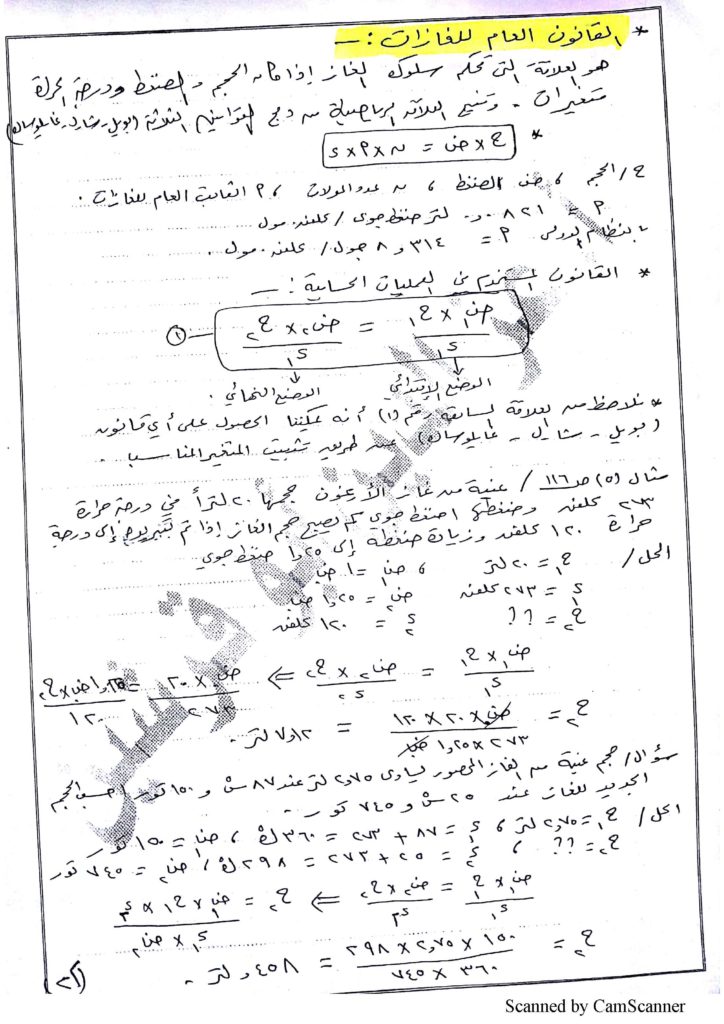 * القانون العام للغازات :-
هو العلاقة التي تحكم سلوك الغاز إذا كان الحجم والضغط ودرجة الحرارة
متغيرات . وتنتج العلاقة الرياضية من دمج القوانين الثلاثة (بويل - شارل - غايلوساك)
* ح × ض = ن × ٩ × د
ح / الحجم ، ض الضغط ، ن عدد المولات ، ٩ الثابت العام للغازات .
٩ = ٠,٠٨٢١ لتر ضغط جوي / كلفن . مول
بالنظام الدولي ٩ = ٨,٣١٤ جول / كلفن . مول .
* القانون المستخدم في العمليات الحسابية :-
ض١ × ح١ / د١ = ض٢ × ح٢ / د١ ①
الوضع الإبتدائي الوضع النهائي .
* نلاحظ من العلاقة السابقة رقم (١) أنه يمكننا الحصول على أي قانون
(بويل - شارل - غايلوساك) عن طريق تثبيت المتغير المناسب .
مثال (٥) صـ ١١٦ / عينة من غاز الأرغون حجمها ٢٠ لتراً في درجة حرارة
٢٧٣ كلفن وضغطها ١ ضغط جوي كم يصبح حجم الغاز إذا تم تبريده إلى درجة
حرارة ١٢٠ كلفن وزيادة ضغطه إلى ١,٢٥ ضغط جوي
الحل / ح١ = ٢٠ لتر ، ض١ = ١ ض
د١ = ٢٧٣ كلفن ض٢ = ١,٢٥ ض
ح٢ = ؟؟ د٢ = ١٢٠ كلفن
ض١ × ح١ / د١ = ض٢ × ح٢ / د٢ ⇐ ض × ٢٠ / ٢٧٣ = ١,٢٥ ض × ح٢ / ١٢٠
ح٢ = ض × ٢٠ × ١٢٠ / ٢٧٣ × ١,٢٥ ض = ٧,١٢ لتر .
سؤال / حجم عينة من الغاز المحصور يساوي ٢,٧٥ لتر عند ٨٧ س و ١٥٠ تور احسب الحجم
الجديد للغاز عند ٢٥ س و ٧٤٥ تور .
الحل / ح١ = ٢,٧٥ لتر ، د١ = ٨٧ + ٢٧٣ = ٣٦٠ ك ، ض١ = ١٥٠ تور
ح٢ = ؟؟ ، د٢ = ٢٥ + ٢٧٣ = ٢٩٨ ك ، ض٢ = ٧٤٥ تور
ض١ × ح١ / د١ = ض٢ × ح٢ / د٢ ⇐ ح٢ = ض١ × ح١ × د٢ / د١ × ض٢
ح٢ = ١٥٠ × ٢,٧٥ × ٢٩٨ / ٣٦٠ × ٧٤٥ = ٤٥٨, لتر .
Scanned by CamScanner